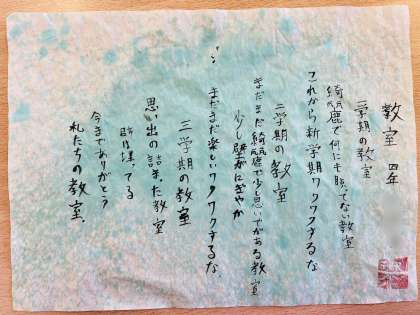 教室 四年
一学期の教室
綺麗で何にも映ってない教室
これから新学期ワクワクするな
二学期の教室
まだまだ綺麗で少し思いでがある教室
少し壁がにぎやか
まだまだ楽しいワクワクするな
三学期の教室
思い出の詰また教室
壁は埋ってる
今までありがとう
私たちの教室